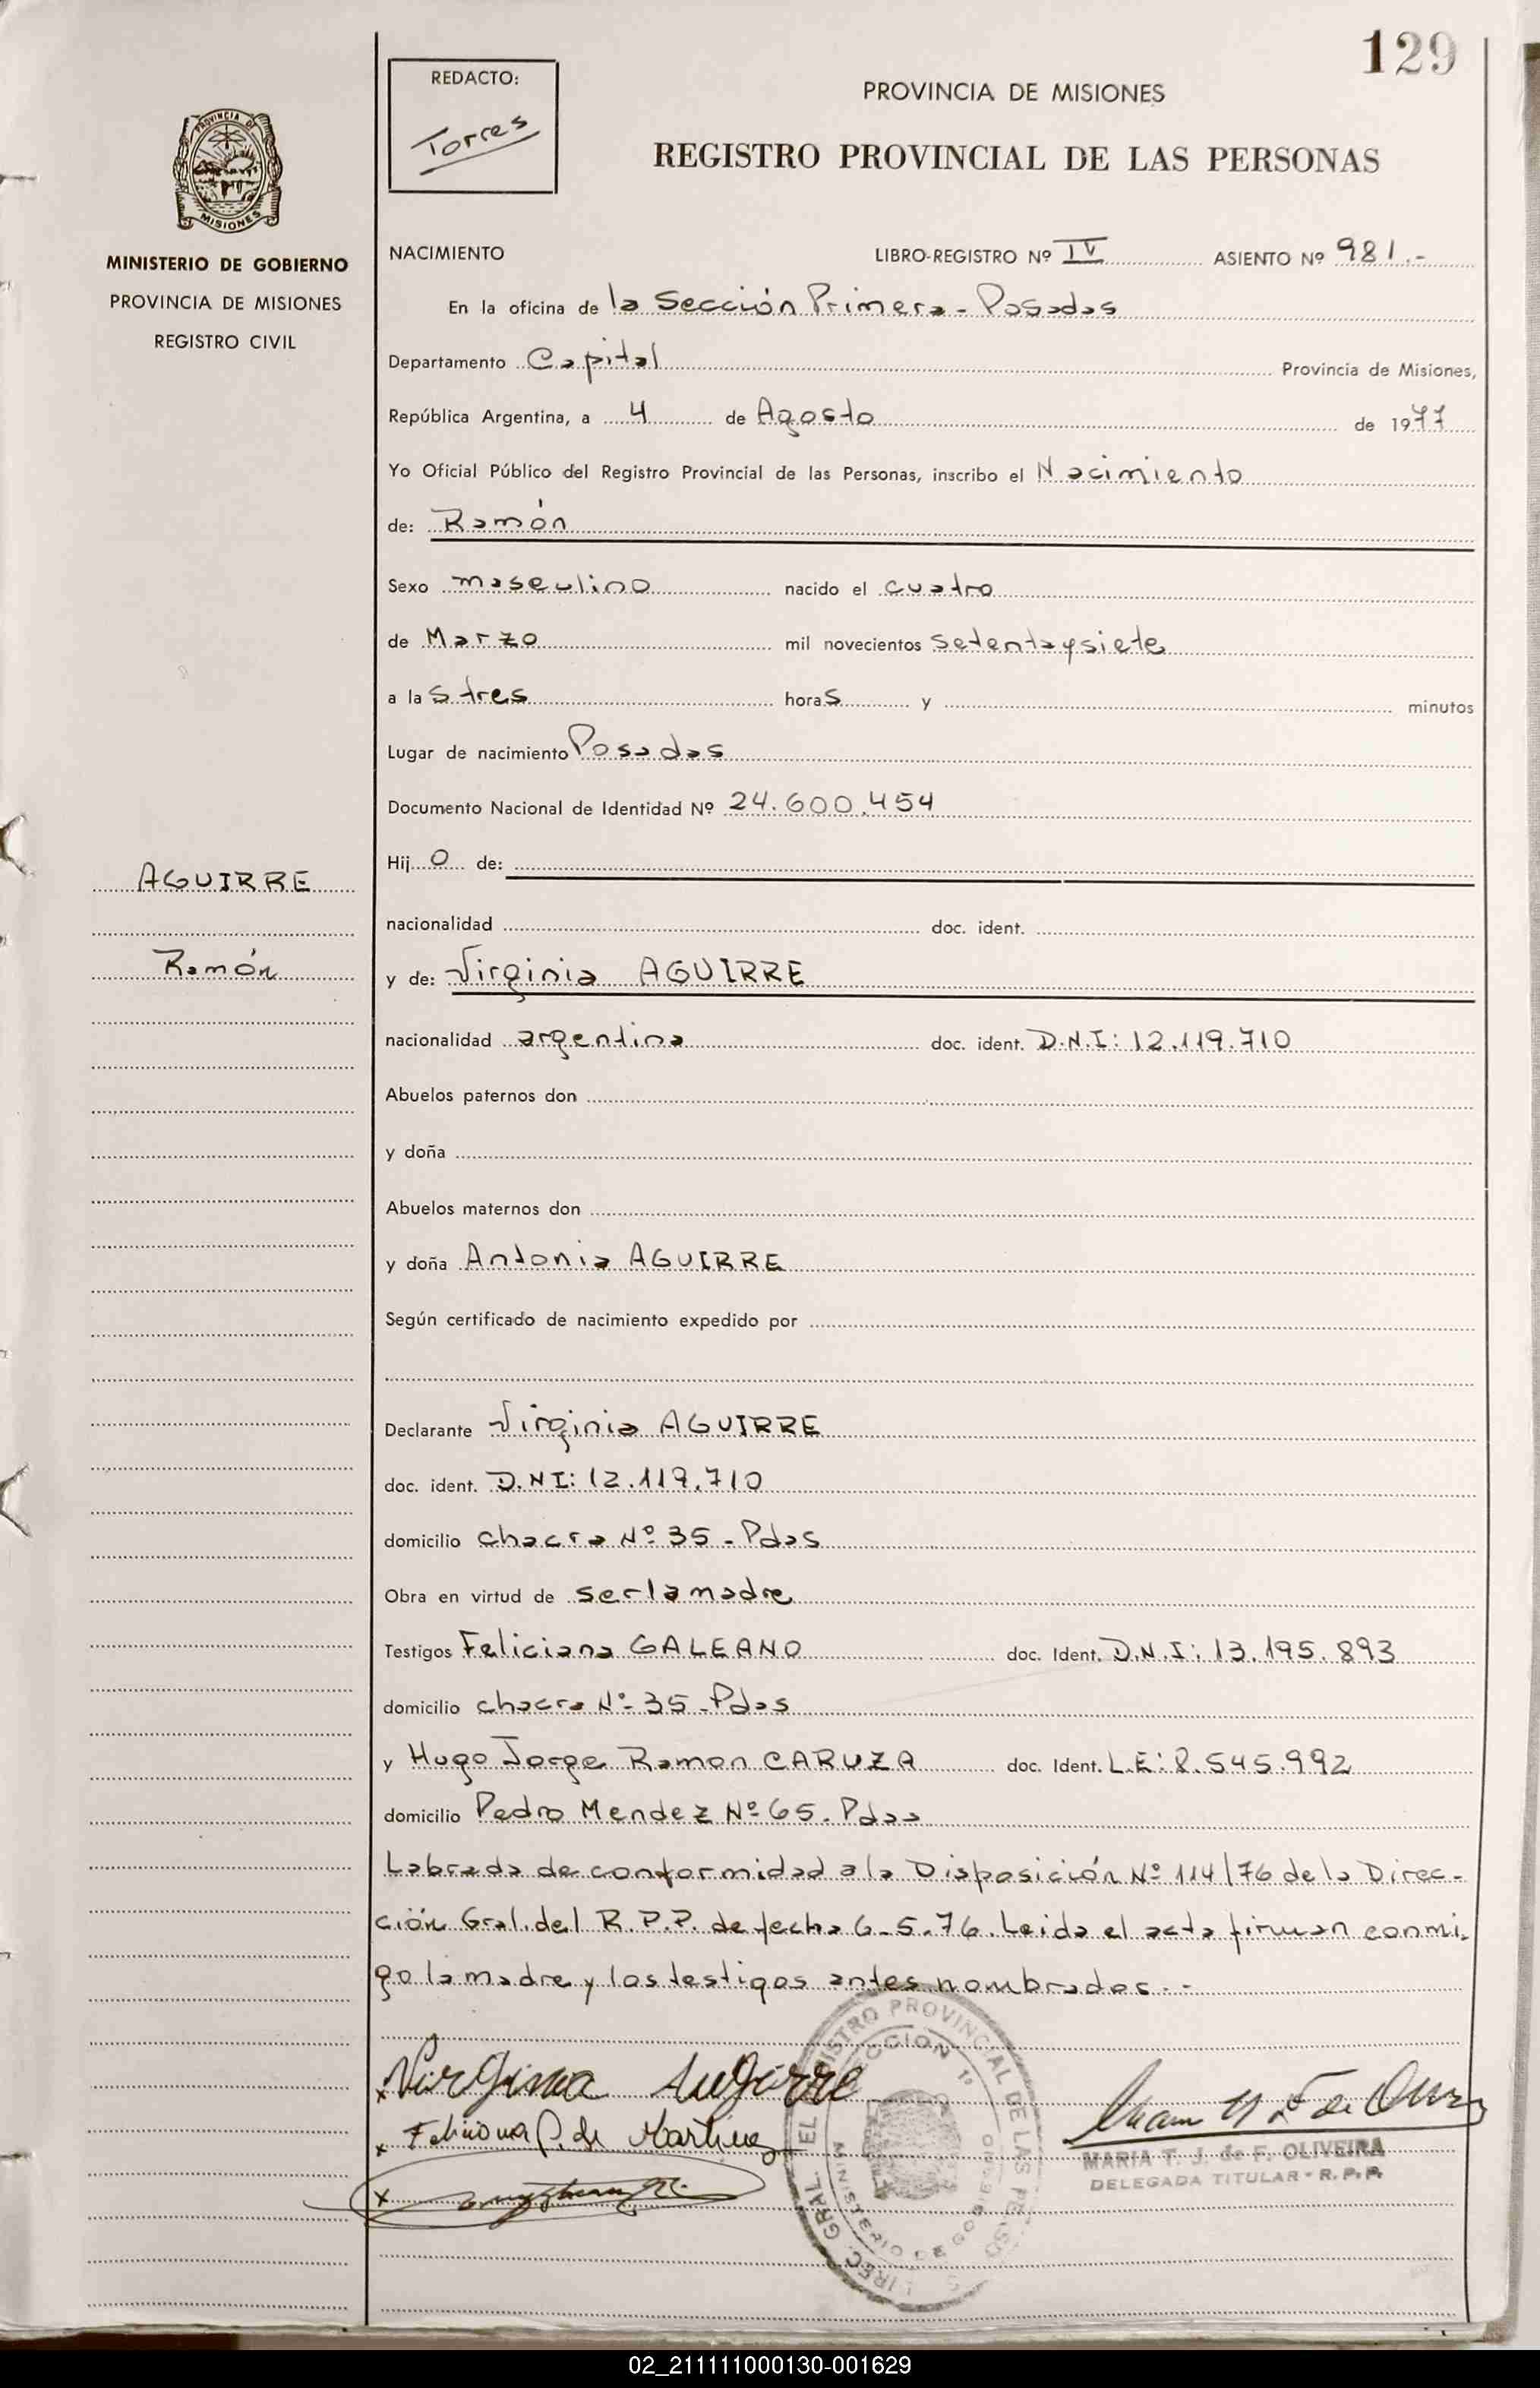 129
REDACTO:
Torres
PROVINCIA DE MISIONES
REGISTRO PROVINCIAL DE LAS PERSONAS
PROVINCIA DE
MISIONES
MINISTERIO DE GOBIERNO
PROVINCIA DE MISIONES
REGISTRO CIVIL
NACIMIENTO LIBRO-REGISTRO Nº IV ASIENTO Nº 981.-
En la oficina de la Sección Primera - Posadas
Departamento Capital Provincia de Misiones,
República Argentina, a 4 de Agosto de 1977
Yo Oficial Público del Registro Provincial de las Personas, inscribo el Nacimiento
de: Ramón
Sexo masculino nacido el cuatro
de Marzo mil novecientos setentaysiete
a las tres horas y minutos
Lugar de nacimiento Posadas
Documento Nacional de Identidad Nº 24.600.454
Hijo de:
AGUIRRE
Ramón
nacionalidad doc. ident.
y de: Virginia AGUIRRE
nacionalidad argentina doc. ident. D.N.I: 12.119.710
Abuelos paternos don
y doña
Abuelos maternos don
y doña Antonia AGUIRRE
Según certificado de nacimiento expedido por
Declarante Virginia AGUIRRE
doc. ident. D.NI: 12.119.710
domicilio chacra Nº 35 - Pdas
Obra en virtud de ser la madre
Testigos Feliciana GALEANO doc. Ident. D.N.I: 13.195.893
domicilio chacra Nº 35 - Pdas
y Hugo Jorge Ramon CARUZA doc. Ident. L.E: 8.545.992
domicilio Pedro Mendez Nº 65. Pdas
Labrada de conformidad a la Disposición Nº 114/76 de la Direc-
ción Gral. del R.P.P. de fecha 6-5-76. Leida el acta firman conmi-
go la madre y los testigos antes nombrados.-
x Virginia Augirre
x Feliciona G. de Martinez
x
MARIA T. J. de F. OLIVEIRA
DELEGADA TITULAR - R.P.P.
DIREC. GRAL. DEL REGISTRO PROVINCIAL DE LAS PERSONAS
SECCION 1º
MINISTERIO DE GOBIERNO
02_211111000130-001629